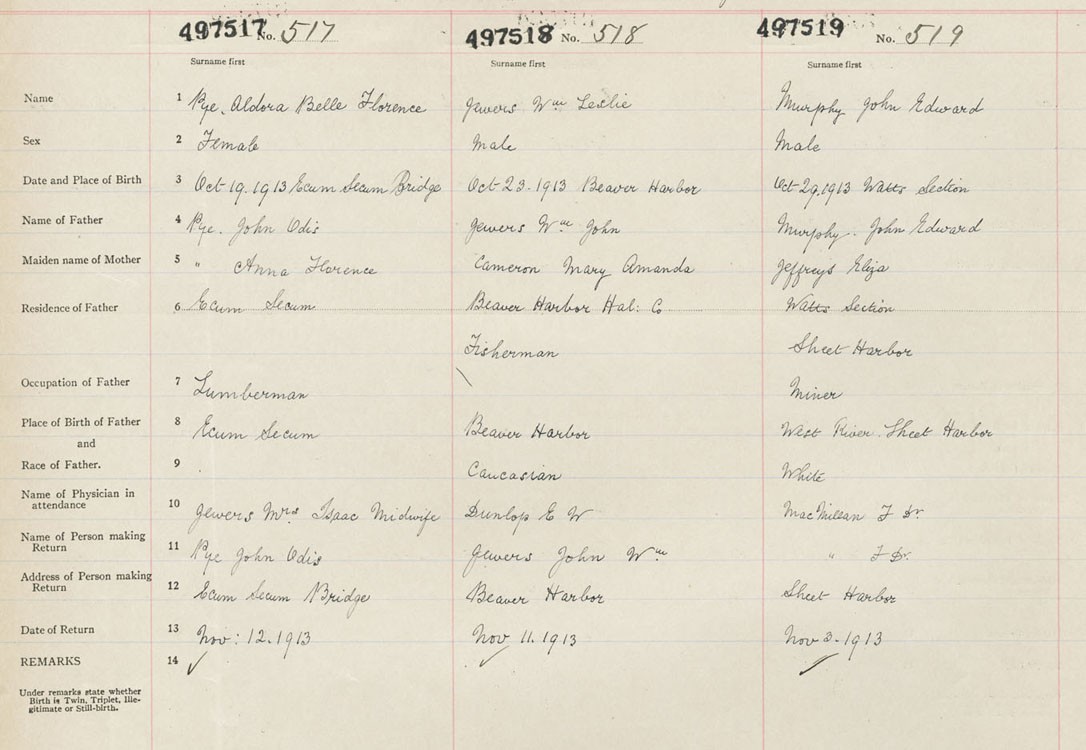 497517 No. 517 497518 No. 518 497519 No. 519
Surname first Surname first Surname first
Name 1 Pye. Aldora Belle Florence Jewers Wm Leslie Murphy John Edward
Sex 2 Female Male Male
Date and Place of Birth 3 Oct 19. 1913 Ecum Secum Bridge Oct 23. 1913 Beaver Harbor Oct 29. 1913 Watts Section
Name of Father 4 Pye. John Odis Jewers Wm John Murphy. John Edward
Maiden name of Mother 5 " Anna Florence Cameron Mary Amanda Jeffreys Eliza
Residence of Father 6 Ecum Secum Beaver Harbor Hal: Co Watts Section
Fisherman Sheet Harbor
Occupation of Father 7 Lumberman Miner
Place of Birth of Father 8 Ecum Secum Beaver Harbor West River. Sheet Harbor
and
Race of Father. 9 Caucasian White
Name of Physician in
attendance 10 Jewers Mrs Isaac Midwife Dunlop E W MacMillan F Dr.
Name of Person making
Return 11 Pye John Odis Jewers John Wm " F Dr.
Address of Person making
Return 12 Ecum Secum Bridge Beaver Harbor Sheet Harbor
Date of Return 13 Nov: 12. 1913 Nov 11. 1913 Nov 3. 1913
REMARKS 14 ✓ ✓ ✓
Under remarks state whether
Birth is Twin, Triplet, Ille-
gitimate or Still-birth.